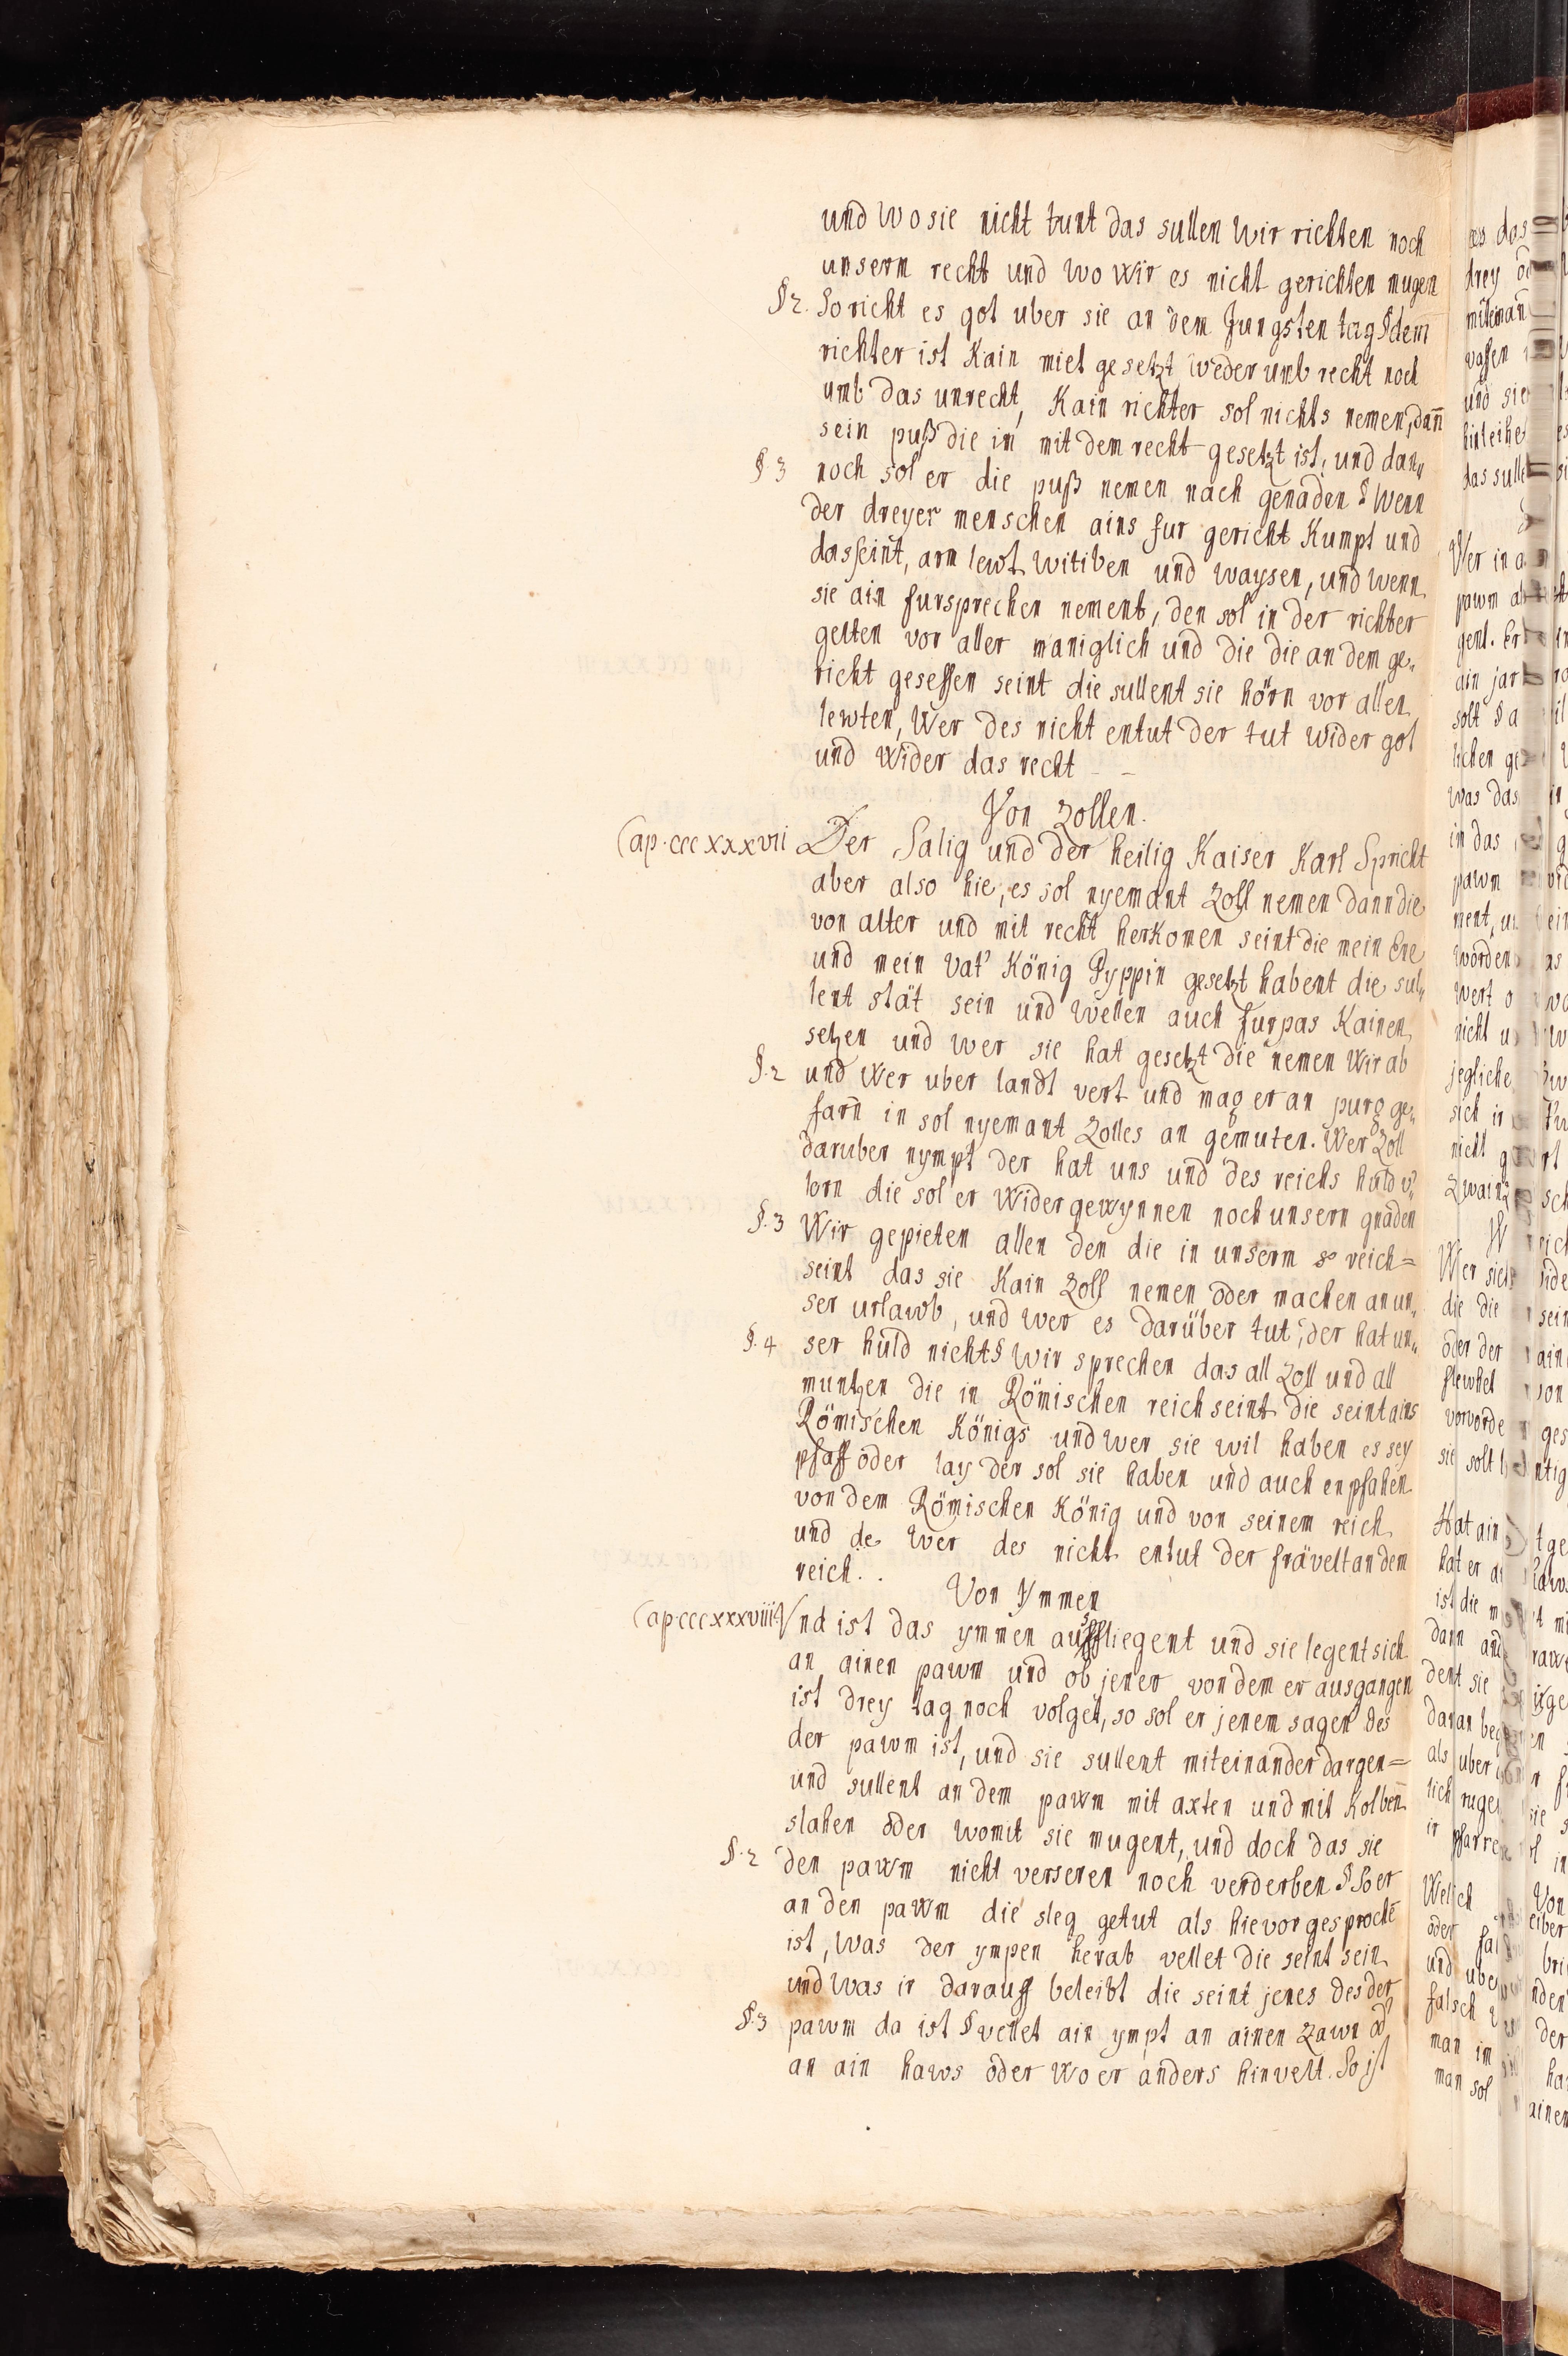 und wo sie nicht tunt das sullen wir richten noch
unserm recht und wo wir es nicht gerichten mugen
§ 2. So richt es got uber sie an dem Jungsten tag § dem̄
richter ist Kain miet gesetzt weder umb recht noch
umb das unrecht, Kain richter sol nichts nemen, dañ
sein puß die in mit dem recht gesetzt ist, und dan„
§ 3 noch sol er die puß nemen nach genaden § Wenn
der dreyer menschen ains fur gericht Kumpt und
das seint, arm lewt witiben und waysen, und wenn
sie ain fursprechen nement, den sol in der richter
gelten vor aller maniglich und die die an dem ge„
richt gesessen seint die sullent sie hörn vor allen
lewten, Wer des nicht entut der tut wider got
und wider das recht - -
Von Zollen.
Cap. cccxxxvii Der Salig und der heilig Kaiser Karl Spricht
aber also hie, es sol nyemant Zoll nemen dann die
von alter und mit recht herKomen seint die mein Ene
und mein vat' König Pyppin gesetzt habent die sul„
lent stät sein und wellen auch furpas Kainen
setzen und wer sie hat gesetzt die nemen wir ab
§. 2 und wer uber landt vert und mag er an purg ge„
farn in sol nyemant Zolles an gemuten. Wer Zoll
daruber nympt der hat uns und des reichs huld v'
lorn die sol er wider gewynnen noch unsern gnaden
§. 3 Wir gepieten allen den die in unserm so reich=
seint das sie Kain Zoll nemen oder machen an un„
ser urlawb, und wer es darüber tut, der hat un„
§. 4 ser huld nicht § wir sprechen das all Zoll und all
muntzen die in Römischen reich seint die seint ains
Römischen Königs und wer sie wil haben es sey
pfaff oder lay der sol sie haben und auch enpfahen
von dem Römischen König und von seinem reich
und de wer des nicht entut der frävelt an dem
reich. .
Von Ymmen
Cap. cccxxxviii Und ist das ymmen ausfliegent und sie legent sich
an ainen pawm und ob jener von dem er ausgangen
ist drey tag noch volget, so sol er jenem sagen des
der pawm ist, und sie sullent miteinander dargen=
und sullent an dem pawm mit axten und mit Kolben̄
slahen oder womit sie mugent, und doch das sie
§. 2 den pawm nicht verseren noch verderben § So er
an den pawm die sleg getut als hievor gesproche̅
ist, was der ympen herab vellet die seint sein
und was ir darauff beleibt die seint jenes des der
§. 3 pawm da ist § vellet ain ympt an ainen Zawn od'
an ain haws oder wo er anders hinvelt. So ist